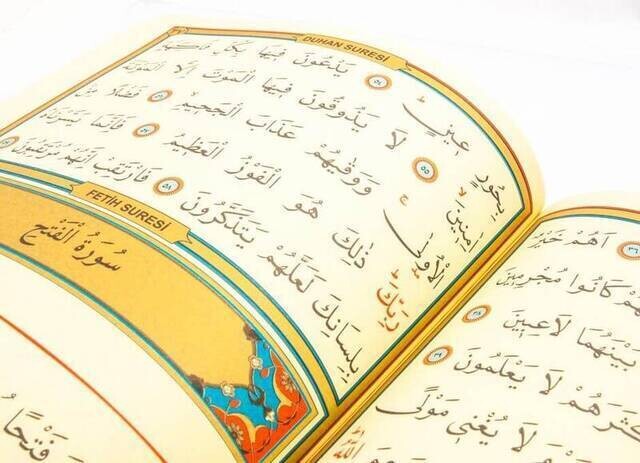 DUHAN SURESİ
بِحُورٍ عِينٍ ﴿٥٤﴾ يَدْعُونَ فِيهَا بِكُلِّ فَاكِهَةٍ
اٰمِنِينَ ﴿٥٥﴾ لَا يَذُوقُونَ فِيهَا الْمَوْتَ اِلَّا الْمَوْتَةَ
وَوَقٰيهُمْ عَذَابَ الْجَحِيمِ ﴿٥٦﴾ فَضْلًا مِنْ
رَبِّكَ ذٰلِكَ هُوَ الْفَوْزُ الْعَظِيمُ ﴿٥٧﴾ فَاِنَّمَا يَسَّرْنَاهُ
بِلِسَانِكَ لَعَلَّهُمْ يَتَذَكَّرُونَ ﴿٥٨﴾ فَارْتَقِبْ اِنَّهُمْ مُرْتَقِبُونَ
FETİH SURESİ
سُورَةُ الْفَتْحِ
فَتْحًا
﴿٣٦﴾ اَهُمْ خَيْرٌ
كَانُوا مُجْرِمِينَ
بَيْنَهُمَا لَاعِبِينَ ﴿٣٨﴾
لَا يَعْلَمُونَ ﴿٣٩﴾
لَا يُغْنِي مَوْلًى
اللّٰهُ